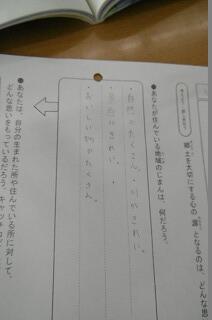 郷土を大切にする心の源となるのは、どんな思
●あなたが住んでいる地域のじまんは、何だろう。
・自然がたくさん。川がきれい。
・景色がきれい。
・おいしい物がたくさん。
●あなたは、自分の生まれた所や住んでいる所に対して、
どんな思いをもっているだろう。キャッチコピ